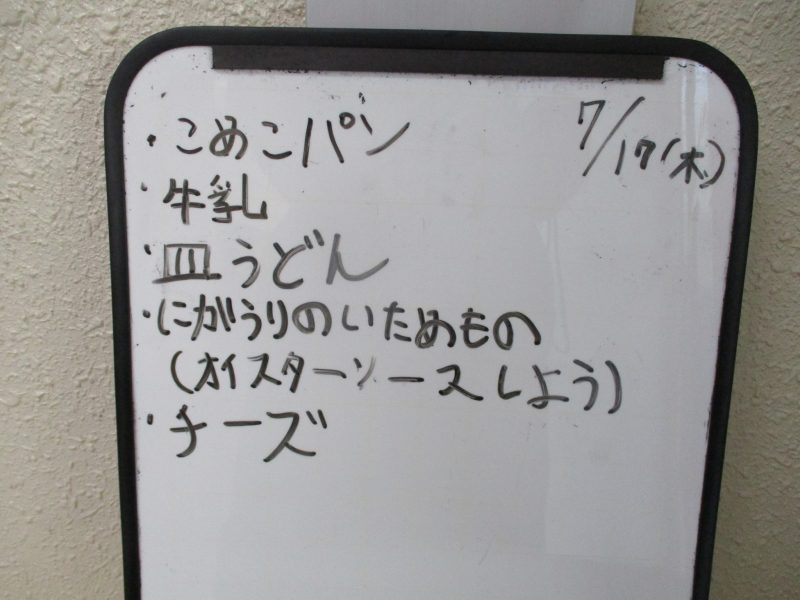 ・こめこパン 7/17(木)
・牛乳
・皿うどん
・にがうりのいためもの
(オイスターソースしよう)
・チーズ